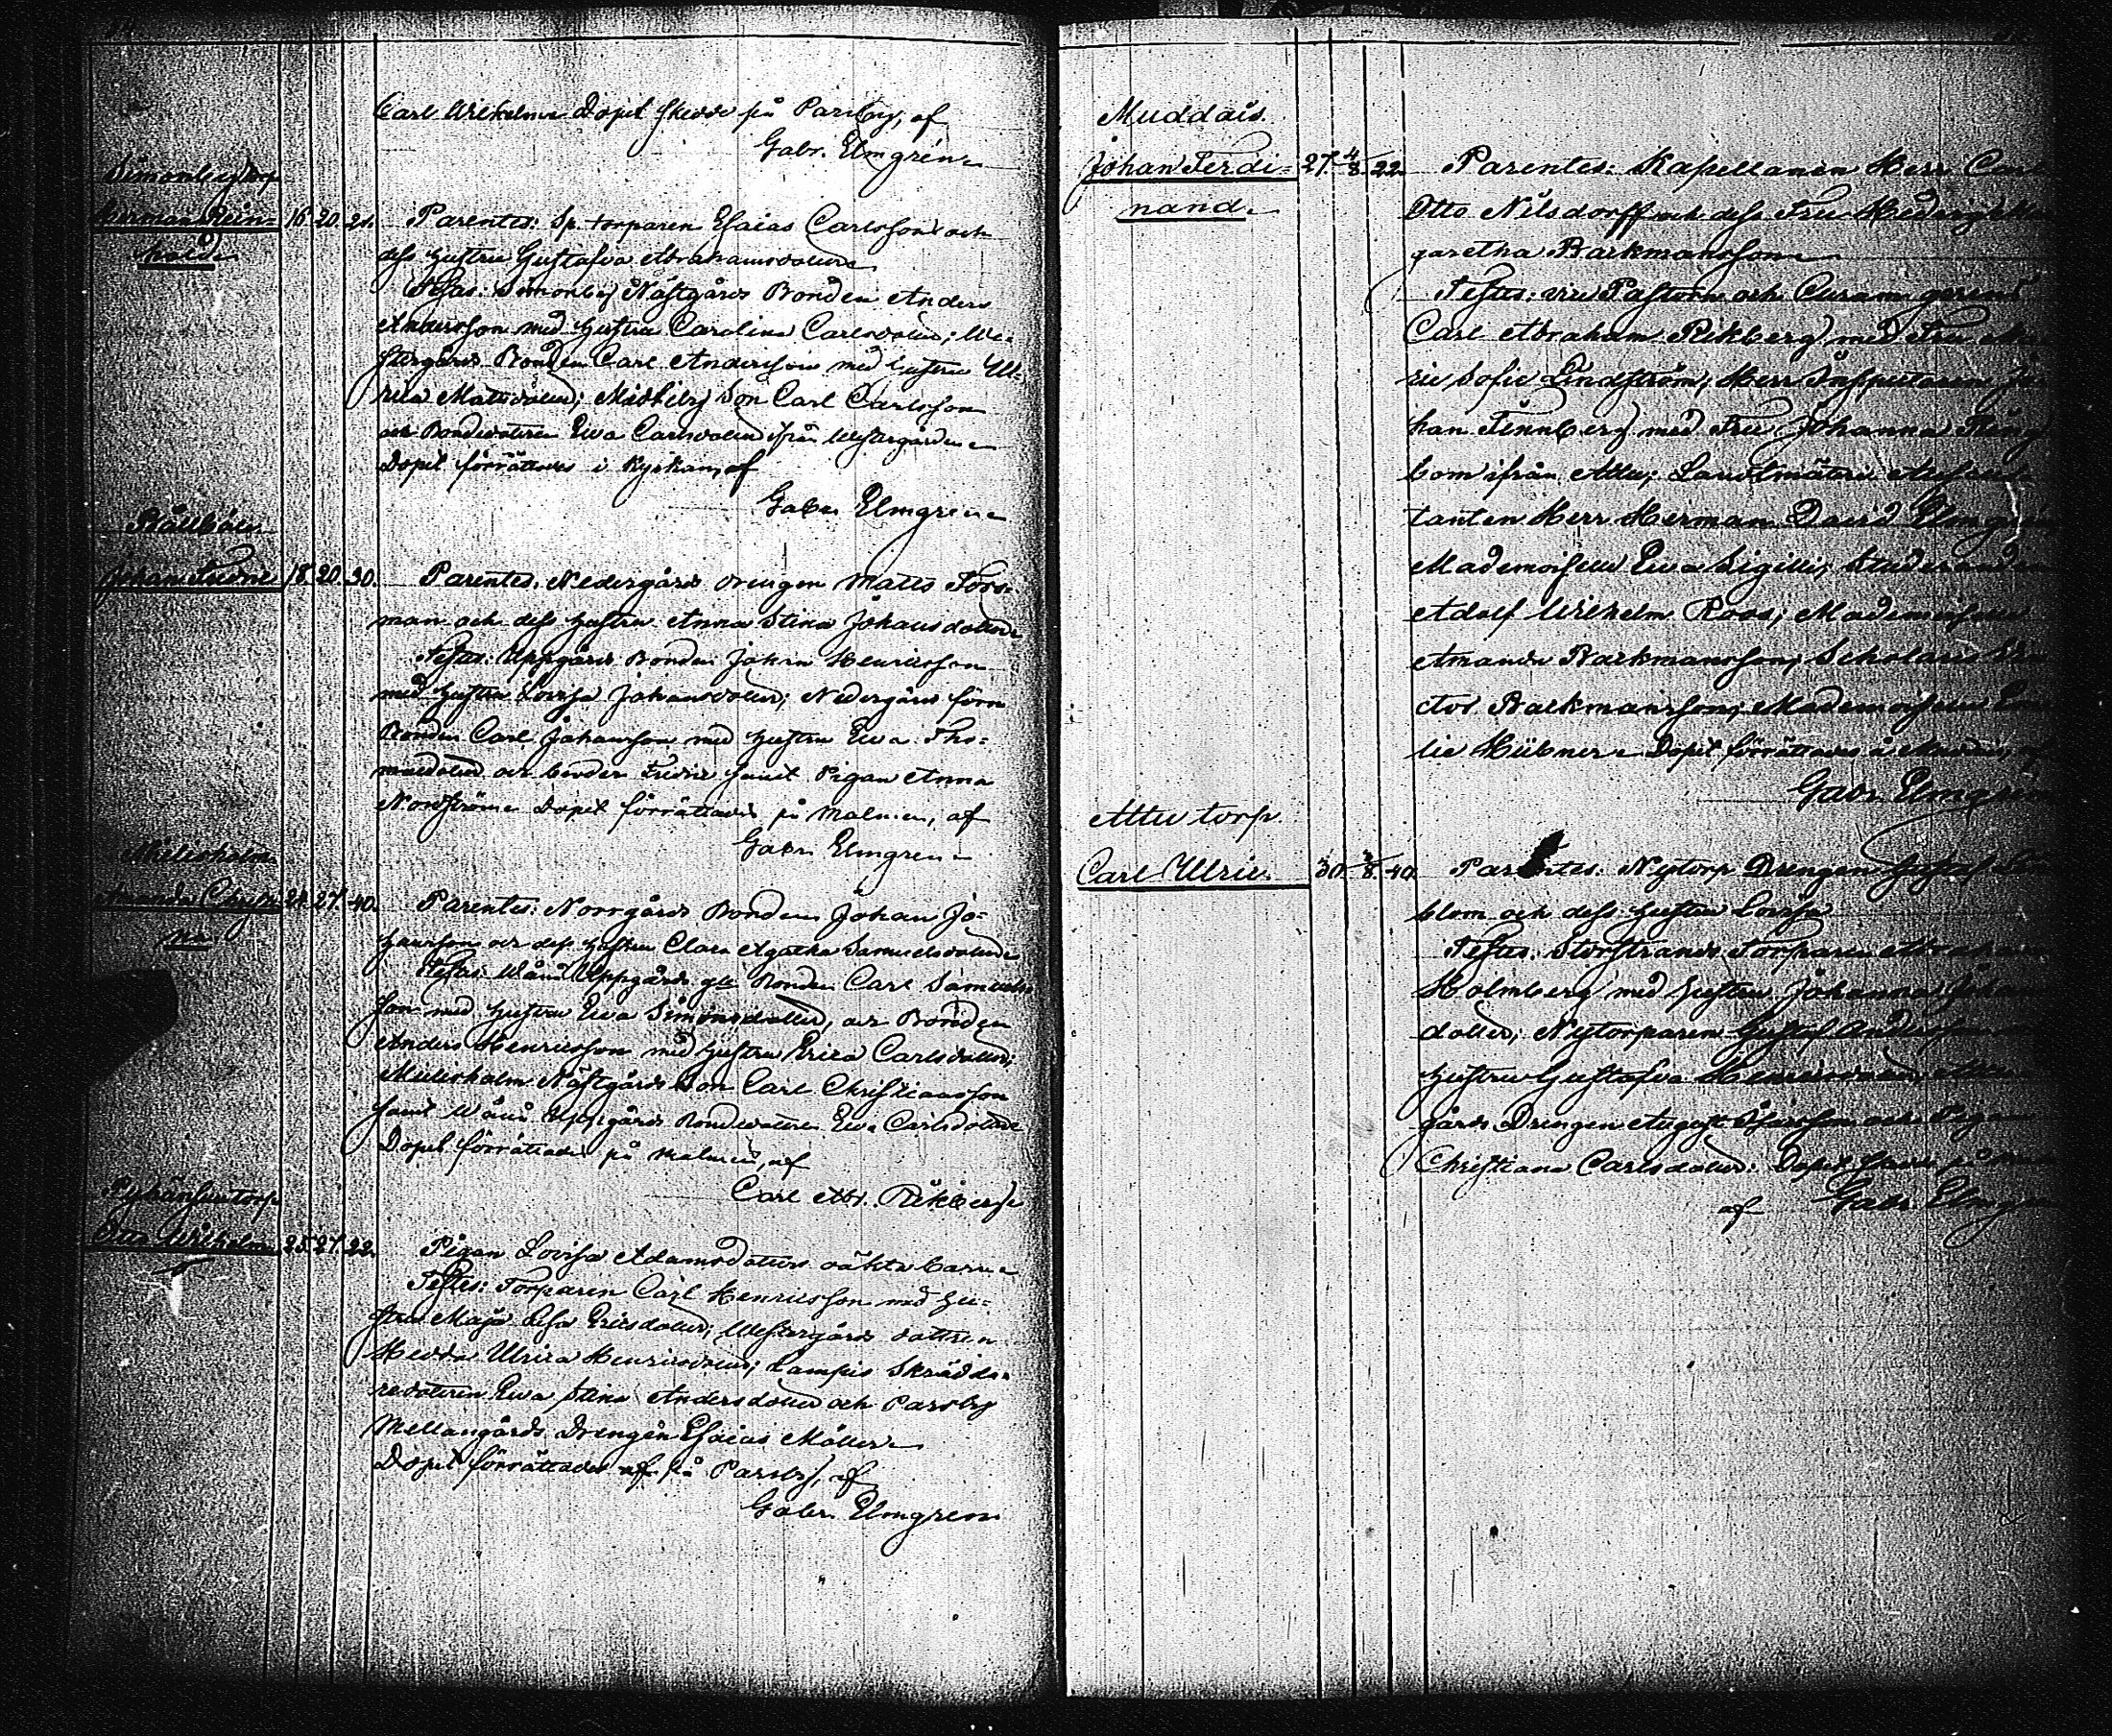 Carl Wilhelms Dopet skedde på Parsby, af
Gabr. Elmgren
Simonby torp
Herman Rein-
hold
16. 20. 21.
Parentes: Sp. torparen Esaias Carlsson och
dess hustru Gustafva Abrahamsdotter
Testes: Simonby Nästgårds Bonden Anders
Andersson med hustru Carolina Carlsdotter; We-
stergårds Bonden Carl Andersson med hustru Ul-
rica Matsdotter; son Carl Carlsson
och Bondedottren Eva Carlsdotter ifrån Westergården
Dopet förrättades i Kyrkan, af
Gabr. Elmgren
Johan Fredric
18. 20. 30.
Parentes: Nedergårds drengen Matts Fors-
man och dess hustru Anna Stina Johansdotter
Testes: Uppgårds Bonden Johan Henricsson
med hustru Lovisa Johansdotter; Nedergårds förra
Bonden Carl Johansson med hustru Eva Tho-
masdotter och Fredric samt Pigan Anna
Nordström Dopet förrättades på Malmen, af
Gabr. Elmgren
Mielisholm
Amanda Christi-
na
24. 27. 40.
Parentes: Norrgårds Bonden Johan Jo-
hansson och dess hustru Clara Agatha Samuelsdotter
Testes: Wånå Uppgårds Bonden Carl Samuels-
son med hustru Eva Simonsdotter, och Bonden
Anders Henricsson med hustru Erica Carlsdotter;
Mielisholm Nästgårds son Carl Christiansson
samt Wånå Uppgårds Bondedottren Eva Carlsdotter
Dopet förrättades på Malmen, af
Carl Abr. Rikberg
torp
Otto Wilhelm
25. 27. 22.
Pigan Lovisa Adamsdotters oäkta barn
Testes: Torparen Carl Henricsson med hu-
stru Maja Lisa Ericsdotter; Westergårds dottren
Hedda Ulrica Henricsdotter; Lampis Skrädda-
redottren Eva Stina Andersdotter och Parsby
Mellangårds Drengen Esaias Möller
Dopet förrättades af på Parsby, af
Gabr. Elmgren
Muddais
Johan Ferdi-
nand
27. 4/8. 22.
Parentes: Kapellanen Herr Carl
Otto Nilsdorff och dess Fru Hedvig
garetha Backmansson
Testes: vice Pastorn och
Carl Abraham Rikberg med Fru
rie Sofie Lindström; Herr Inspectoren Jo-
han Tennberg med Fru Johanna
bom ifrån Attu; Landtmäteri Auscul-
tanten Herr Herman David Elmgren
Mademoiselle Eva Sigilli; Studeranden
Adolf Wilhelm Roos; Mademoiselle
Amanda Backmansson; Scholaris
ctor Backmansson; Mademoiselle
lie Hübner Dopet förrättades å Muddais, af
Gabr. Elmgren
Attu torp
Carl Ulric
30. 3/8. 40.
Parentes: Nytorp Drengen Gustaf
blom och dess hustru Lovisa
Testes: Storstrands Torparen Abraham
Holmberg med hustru Johanna
dotter; Nytorparen Gustaf Andersson
hustru Gustafva Henricsdotter,
gårds Drengen August och Pigan
Christiana Carlsdotter. Dopet skedde på
af Gabr Elmgren